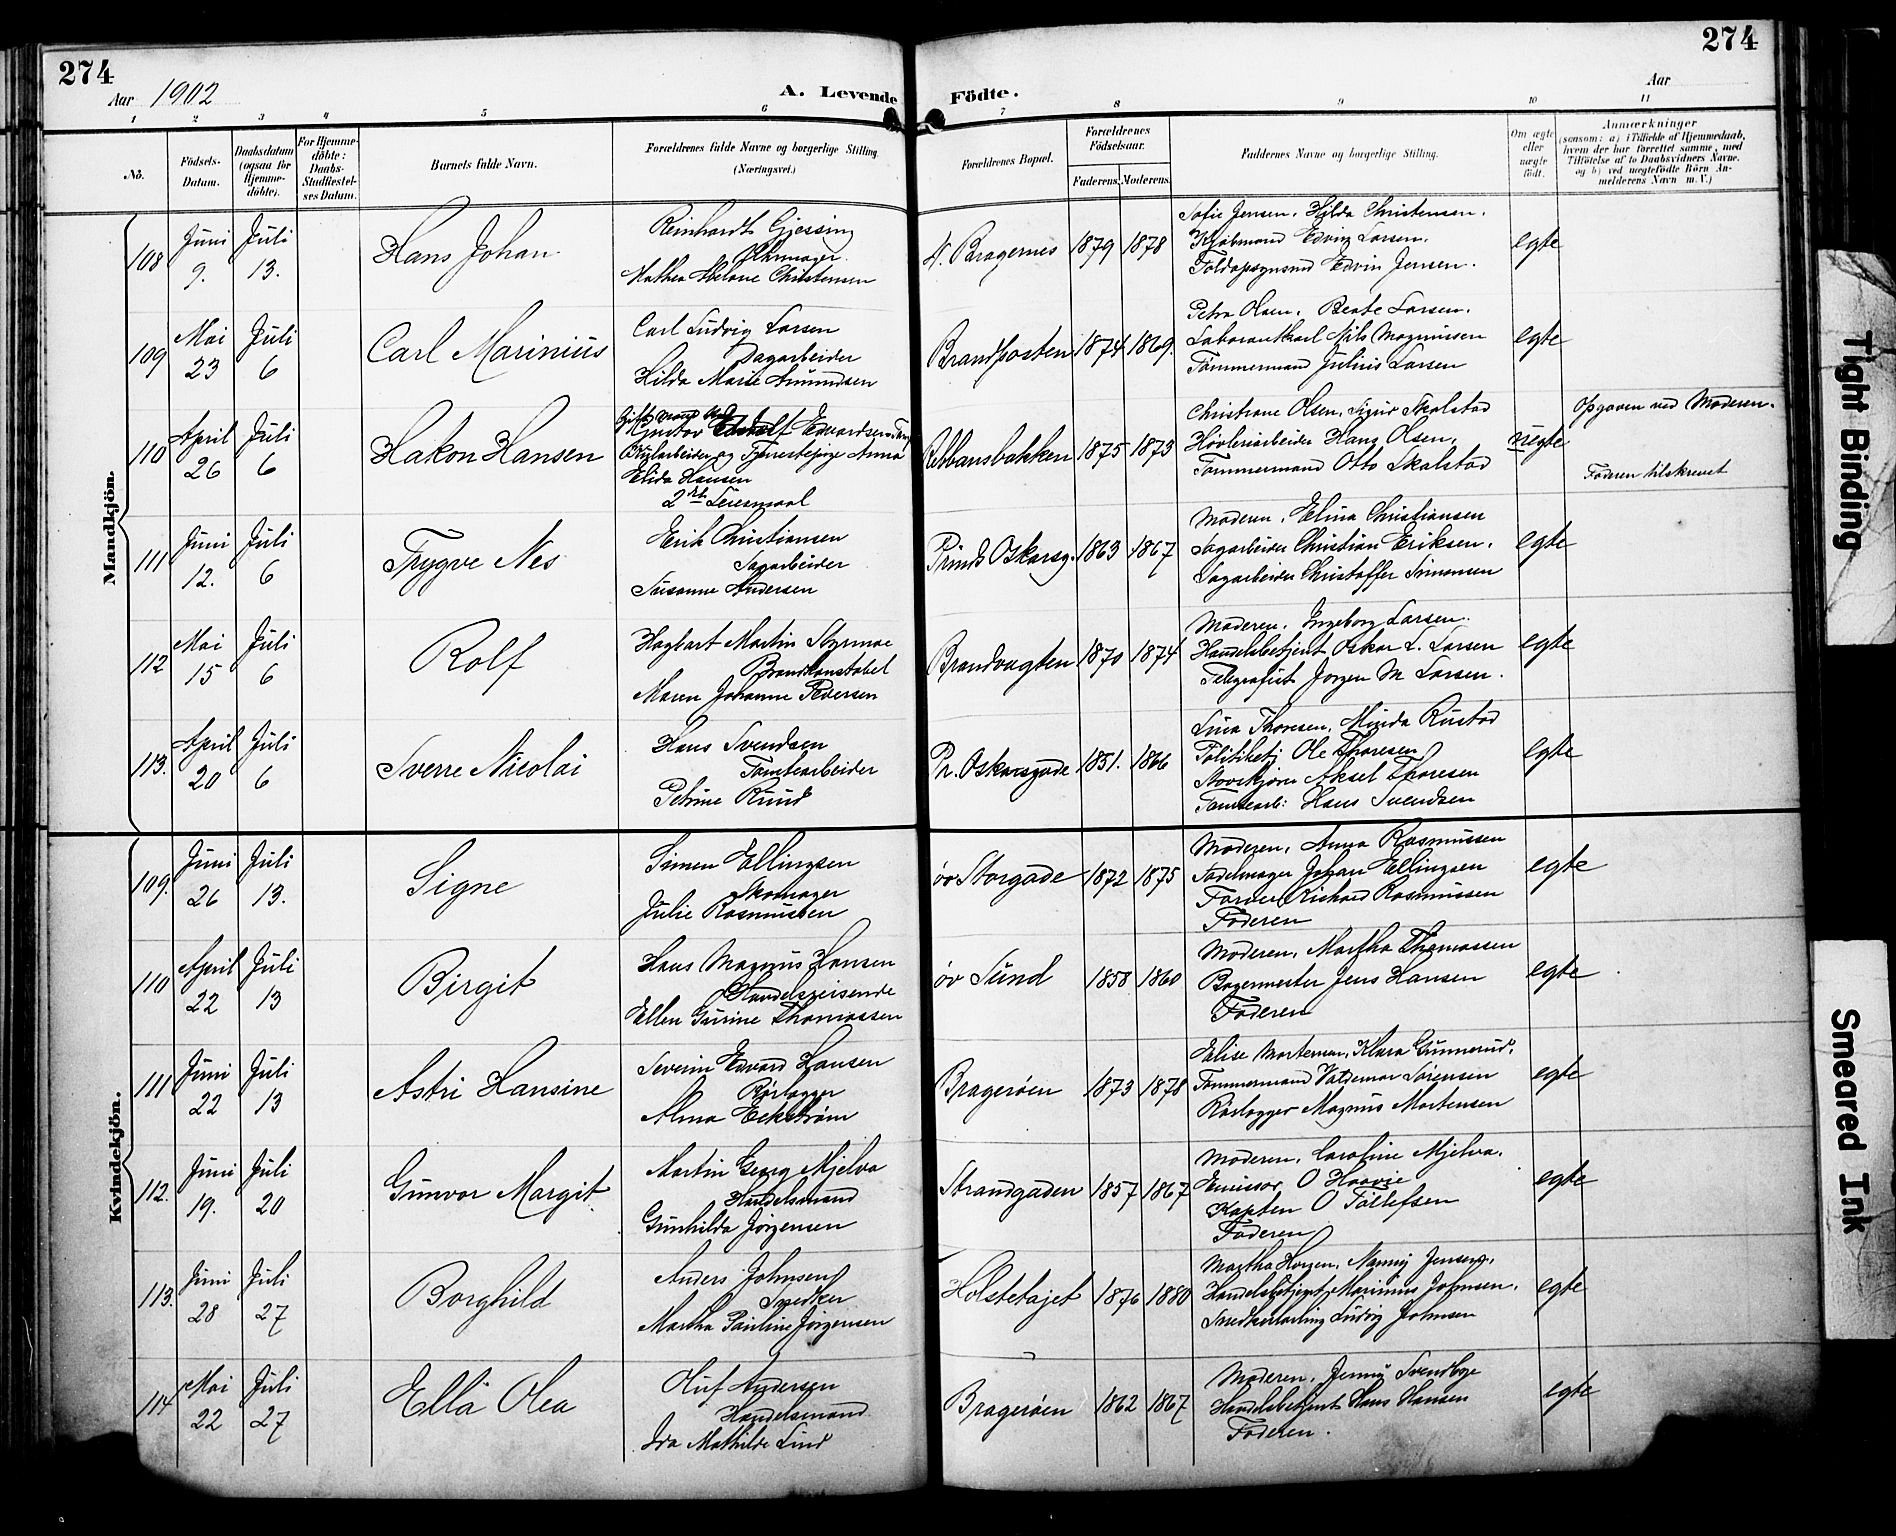 274
274
Aar 1902
A. Levende Födte.
Aar
1 2 3 4 5 6 7 8 9 10 11
No.
Födsels-Datum.
Daabsdatum (ogsaa for Hjemme-döbte).
For Hjemme-döbte: Daabs-Stadfæstel-ses Datum.
Barnets fulde Navn.
Forældrenes fulde Navne og borgerlige Stilling. (Næringsvei.)
Forældrenes Bopæl.
Forældrenes Födselsaar.
Faderens. Moderens.
Faddernes Navne og borgerlige Stilling.
Om ægte eller uægte födt.
Anmærkninger
(saasom: a) i Tilfælde af Hjemmedaab, hvem der har forrettet samme, med Tilföielse af to Daabsvidners Navne. og b) ved uægtefödte Börn An-melderens Navn m. V.)
Mandkjön.
108 Juni 9. Juli 13. Hans Johan
Reinhardt Gjessing
Uhrmager.
Mathea Helene Christensen
N. Bragernes 1879 1878
Sofie Jensen, Hilda Christensen.
Kjøbmand Edvin Larsen.
Toldopsynsmd Edvin Jensen.
egte
109 Mai 23 Juli 6 Carl Marinius
Carl Ludvig Larsen
Dagarbeider
Hilda Marie Amundsen
Brandposten 1874 1869.
Petra Olsen, Beate Larsen.
Laborantkarl Nils Magnussen
Tømmermand Julius Larsen
egte
110 April 26 Juli 6 Hakon Hansen
Gift mand
Gustav Edvardsen
og Tjenestepige Anna
Elida Hansen
2det Leiermaal
Rebbansbakken 1875 1873
Christiane Olsen, Sigur Skalstad
Høvleriarbeider Hans Olsen,
Tømmermand Otto Skalstad
uegte
Opgaven ved Moderen.
Faderen tilskrevet
111 Juni 12. Juli 6 Trygve Nes
Erik Christiansen
Sagarbeider
Susanne Andersen
Prinds Oskarsg. 1863 1867
Moderen, Elina Christiansen
Sagarbeider Christian Eriksen.
Sagarbeider Christoffer Simensen
egte
112 Mai 15 Juli 6 Rolf
Hagbart Martin Styrmoe
Brandkonstabel
Maren Johanne Pedersen
Brandvagten 1870 1874
Moderen, Ingeborg Larsen.
Handelsbetjent Oskar L. Larsen
Telegrafist Jørgen M Larsen.
egte
113. April 20 Juli 6 Sverre Nicolai
Hans Svendsen
Tomtearbeider
Petrine Ruud
Pr. Oskarsgade 1851. 1866
Lina Thoresen, Minda Rustad
Politibetj Ole Thoresen
Aksel Thoresen
Tomtearb: Hans Svendsen
egte
Kvindekjön.
109. Juni 26 Juli 13. Signe
Simen Ellingsen
Skomager
Julie Rasmussen
öv Storgade 1872 1875
Moderen, Anna Rasmussen
Sadelmager Johan Ellingsen
Farver Richard Rasmussen
Faderen
egte
110 April 22 Juli 13 Birgit
Hans Magnus Hansen
Handelsreisende
Ellen Gurine Thomassen
öv Sund 1858 1860
Moderen, Martha Thomassen
Bagermester Jens Hansen
Faderen
egte
111 Juni 22 Juli 13 Astri Hansine
Severin Edvard Hansen
Rørlægger
Alma Eckstrøm
Bragerøen 1873 1878
Elise Mortensen, Klara Gunnerud.
Tømmermand Valdemar Sørensen
Rørlægger Magnus Mortensen
egte
112. Juni 19. Juli 20 Gunvor Margit
Martin Georg Mjelva
Handelsmand
Gunhilda Jørgensen
Strandgaden 1857 1867
Moderen, Caroline Mjelva.
Emissær O Haavie
Kaptein O Tollefsen
Faderen
egte
113. Juni 28 Juli 27 Borghild
Anders Johnsen
Snedker
Martha Pauline Jørgensen
Holstetajet 1876 1880
Martha Horgen, Nanny Jensen,
Handelsbetjent Marinius Johnsen.
Snedkerlærling Ludvig Johnsen
egte
114 Mai 22 Juli 27 Ella Olea
Oluf Andersen
Handelsmand
Ida Mathilde Lind
Bragerøen 1862 1867
Moderen, Jenny Svendbye
Handelsbetjent Hans Hansen
Faderen.
egte
Tight Binding
Smeared Ink